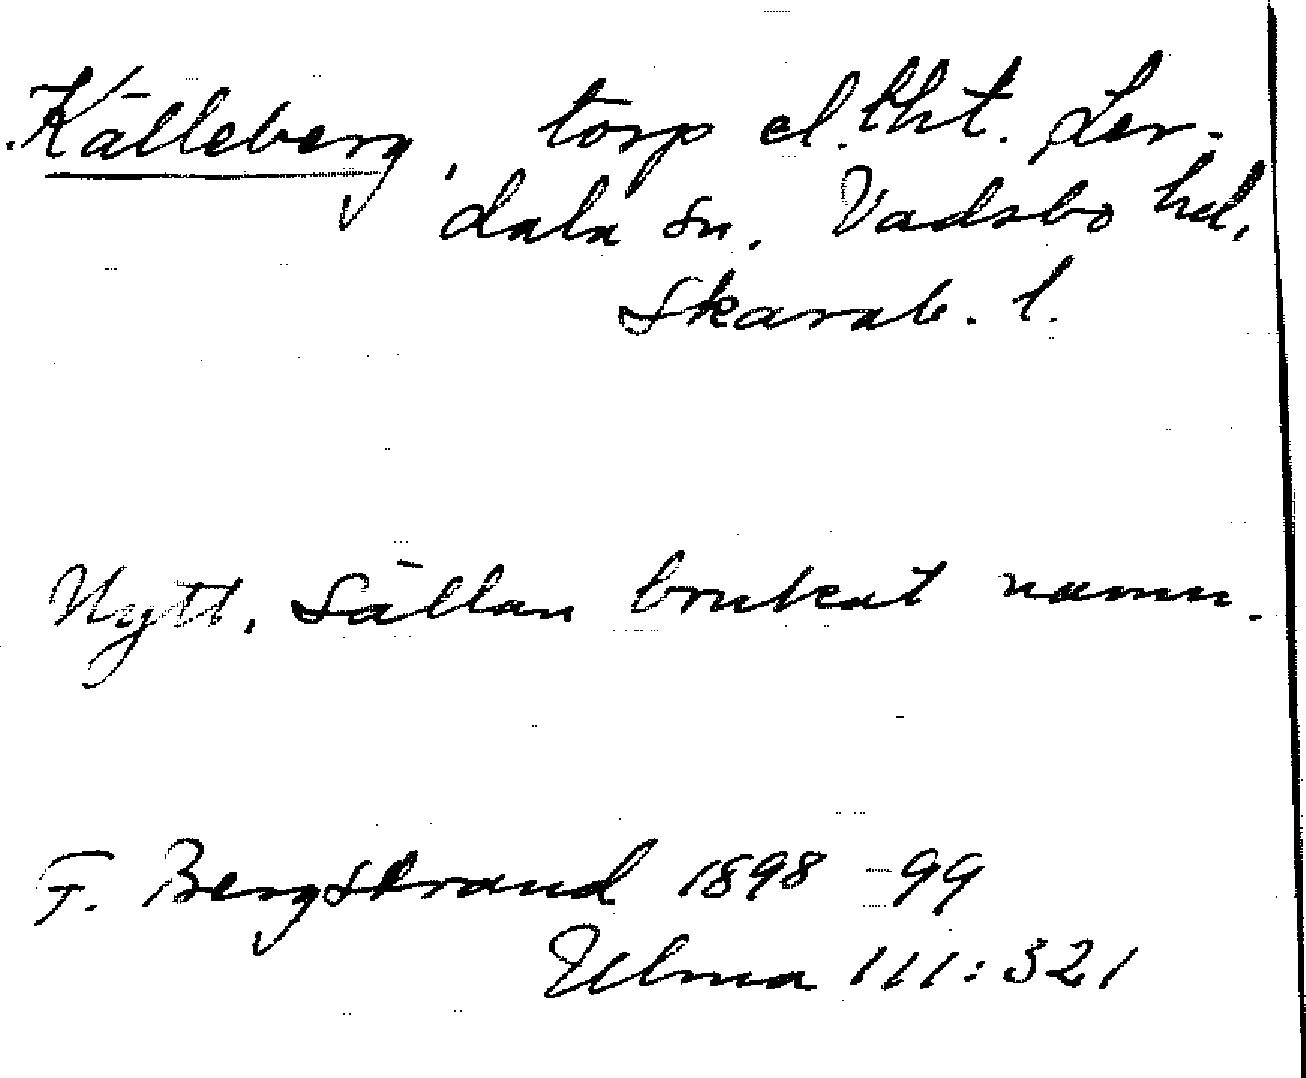 Källeberg, torp el. lht. Ler-
dala sn. Vadsbo hd,
Skarab. l.
Nytt. Sällan brukat namn.
F. Bergstrand 1898-99
Ulma 111:321